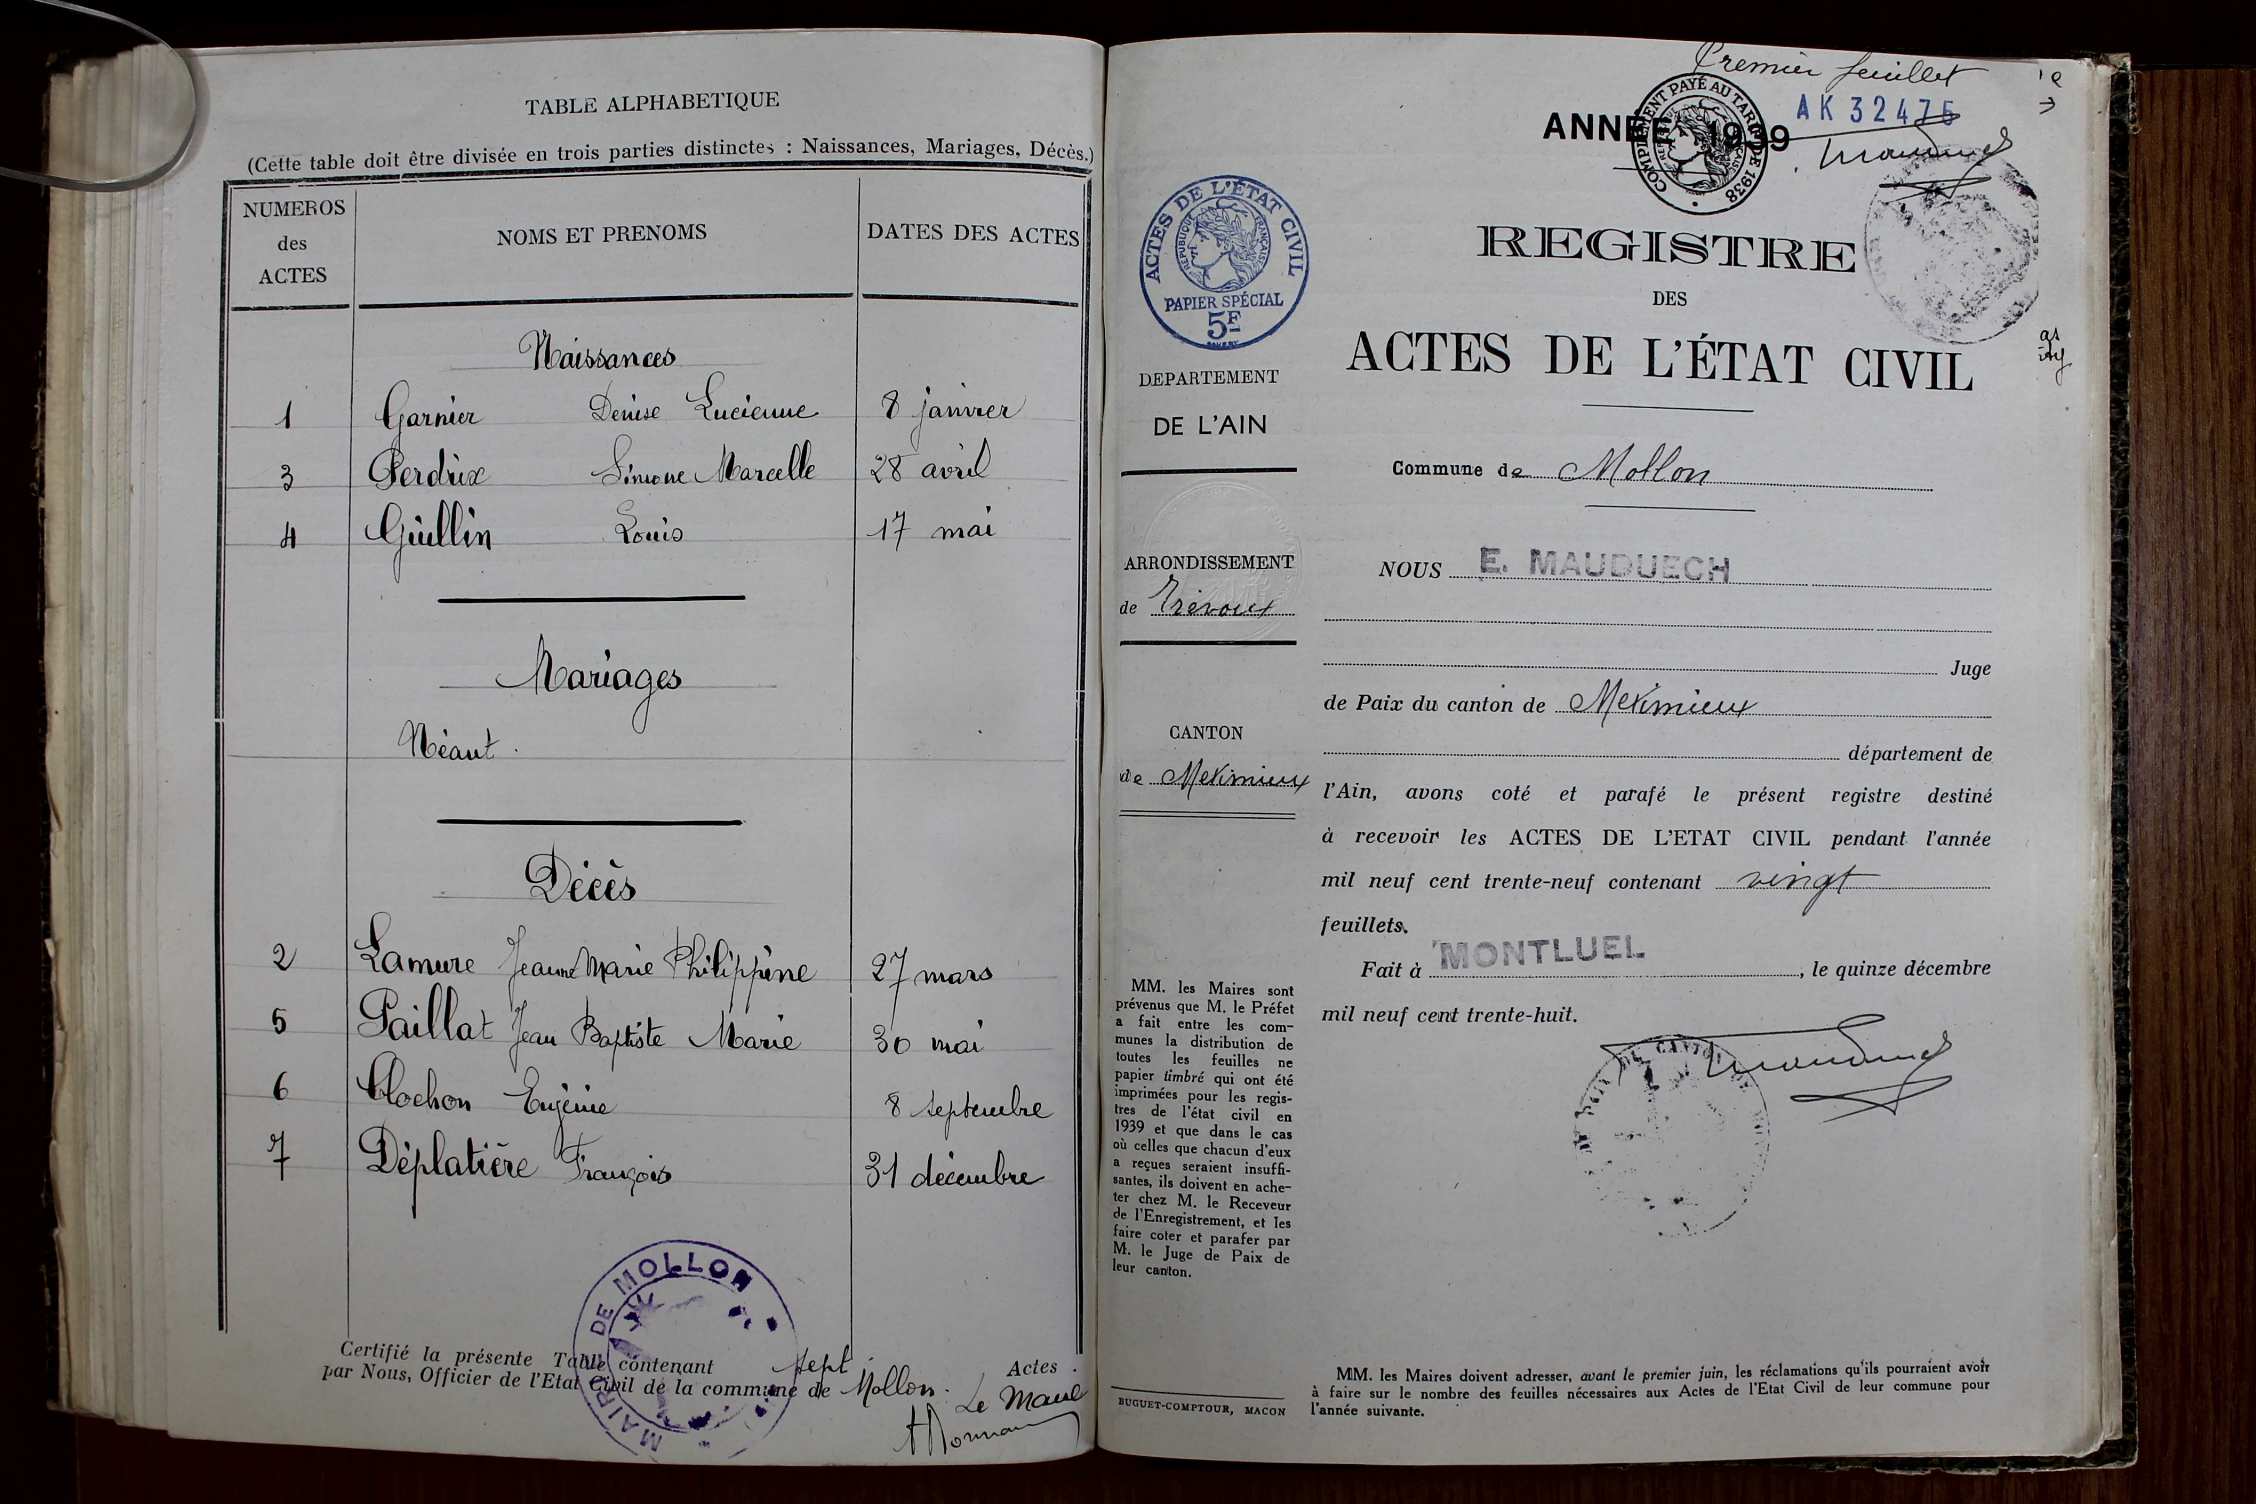 TABLE ALPHABETIQUE
(Cette table doit être divisée en trois parties distinctes : Naissances, Mariages, Décès.)
NUMEROS des ACTES
NOMS ET PRENOMS
DATES DES ACTES
Naissances
1 Garnier Denise Lucienne 8 janvier
3 Perdrix Simone Marcelle 28 avril
4 Guillin Louis 17 mai
Mariages
Néant.
Décès
2 Lamure Jeanne Marie Philippine 27 mars
5 Paillat Jean Baptiste Marie 30 mai
6 Clochon Eugénie 8 septembre
7 Déplatière François 31 décembre
MAIRIE DE MOLLON
Certifié la présente Table contenant sept Actes.
par Nous, Officier de l'Etat Civil de la commune de Mollon.
Le Maire
Premier feuillet
AK 32475
ANNÉE 1939
COMPLEMENT PAYÉ AU TARIF DE 1938
ACTES DE L'ÉTAT CIVIL
RÉPUBLIQUE FRANÇAISE
PAPIER SPÉCIAL
5F
DEPARTEMENT
DE L'AIN
ARRONDISSEMENT
de Trévoux
CANTON
de Meximieux
MM. les Maires sont
prévenus que M. le Préfet
a fait entre les com-
munes la distribution de
toutes les feuilles ne
papier timbré qui ont été
imprimées pour les regis-
tres de l'état civil en
1939 et que dans le cas
où celles que chacun d'eux
a reçues seraient insuffi-
santes, ils doivent en ache-
ter chez M. le Receveur
de l'Enregistrement, et les
faire coter et parafer par
M. le Juge de Paix de
leur canton.
BUGUET-COMPTOUR, MACON
REGISTRE
DES
ACTES DE L'ÉTAT CIVIL
Commune de Mollon
NOUS E. MAUDUECH
Juge
de Paix du canton de Meximieux
département de
l'Ain, avons coté et parafé le présent registre destiné
à recevoir les ACTES DE L'ETAT CIVIL pendant l'année
mil neuf cent trente-neuf contenant vingt
feuillets.
Fait à MONTLUEL, le quinze décembre
mil neuf cent trente-huit.
MM. les Maires doivent adresser, avant le premier juin, les réclamations qu'ils pourraient avoir
à faire sur le nombre des feuilles nécessaires aux Actes de l'Etat Civil de leur commune pour
l'année suivante.